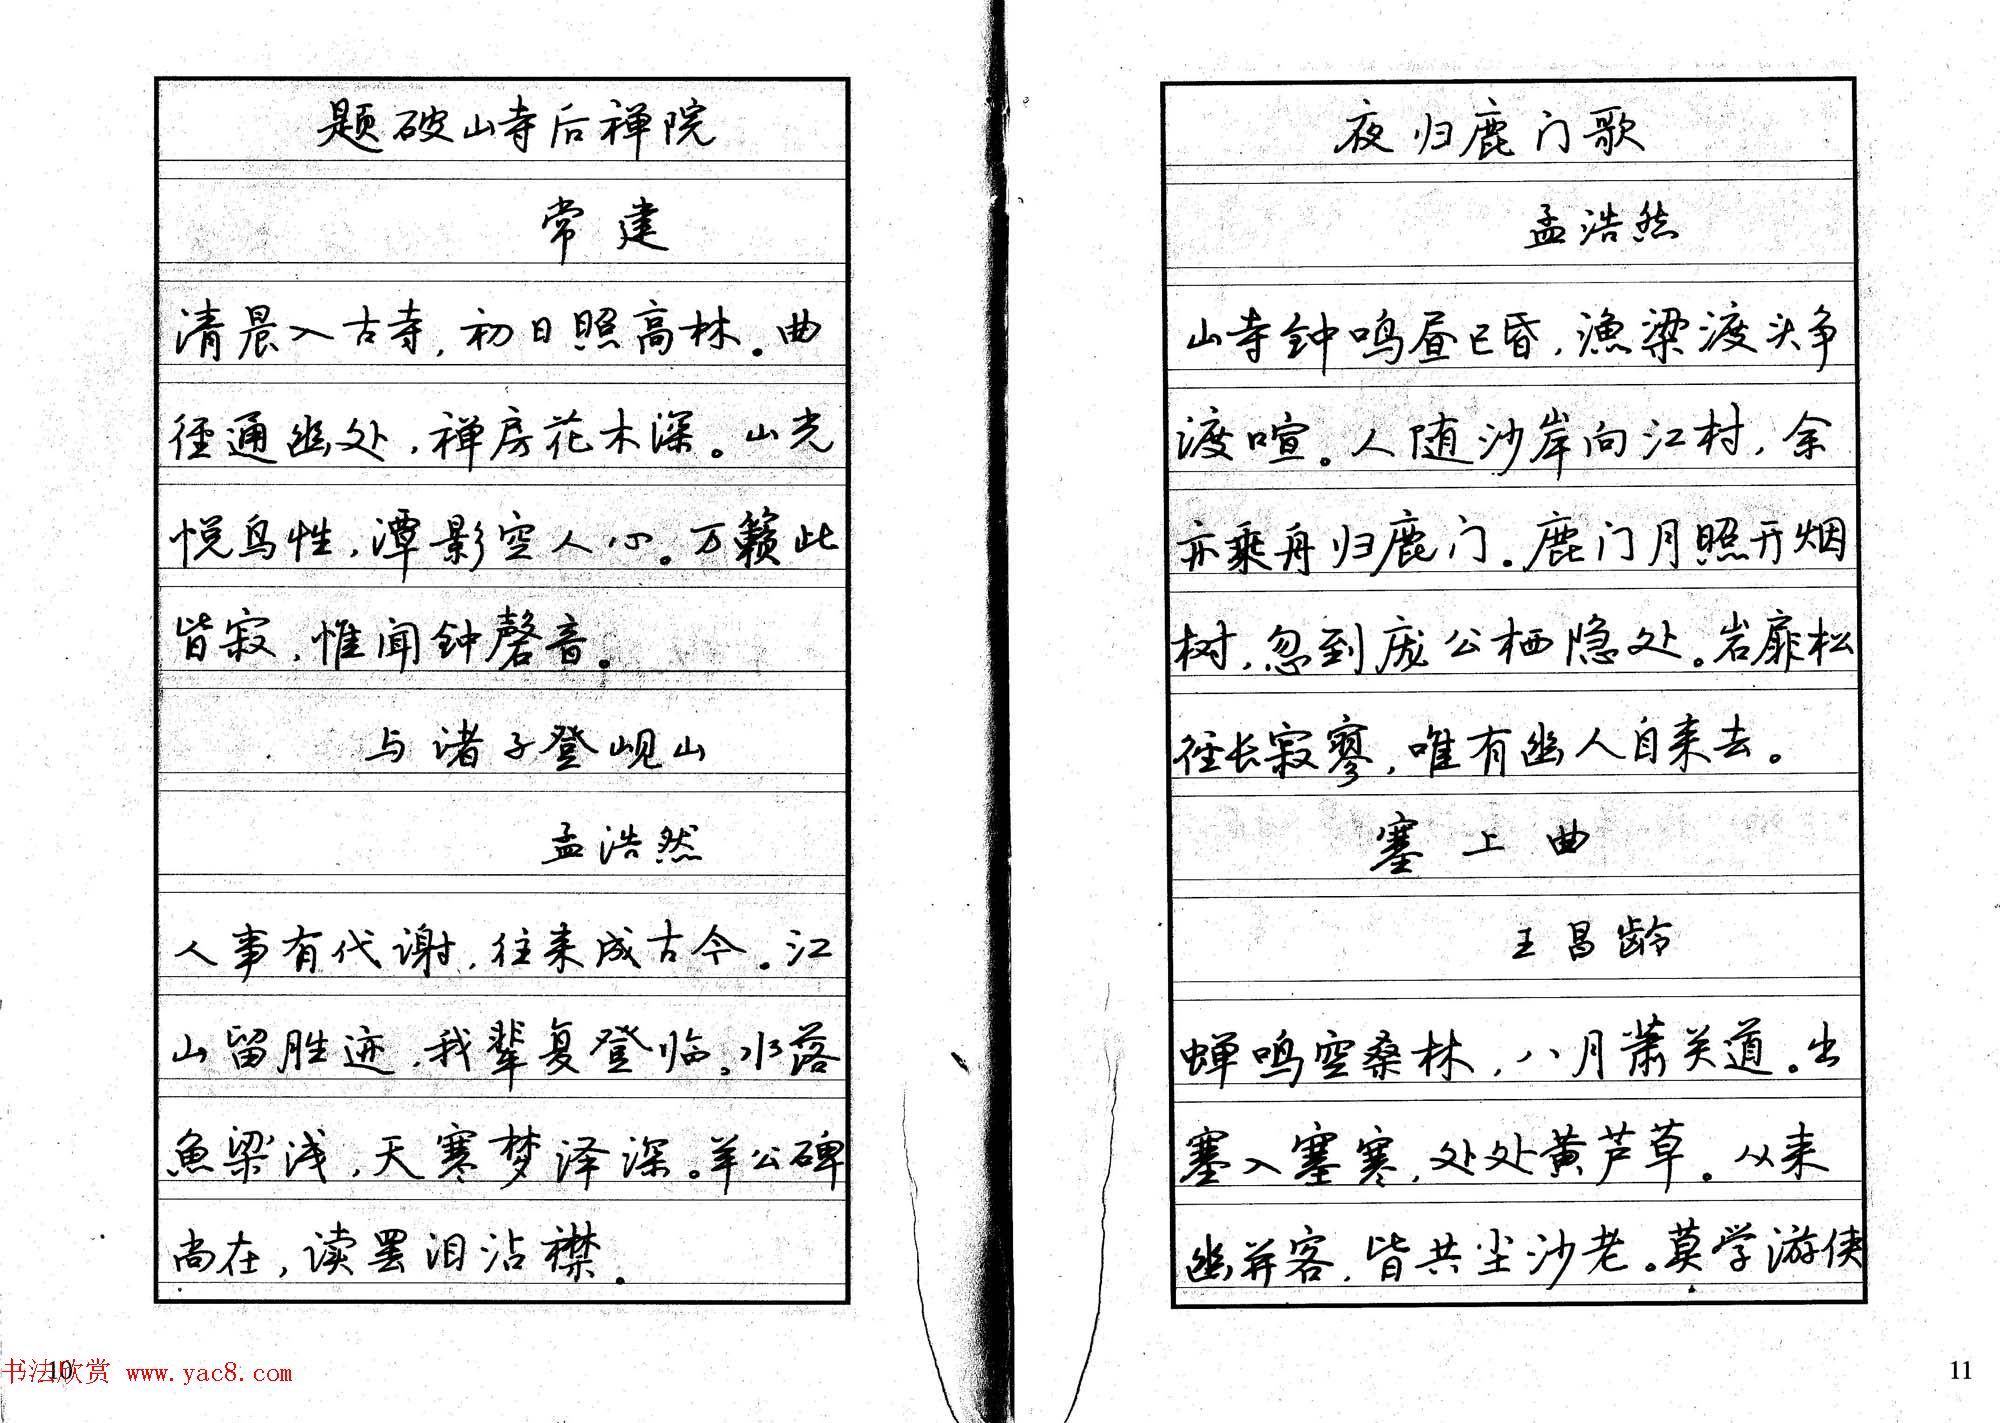 题破山寺后禅院
常建
清晨入古寺,初日照高林。曲
径通幽处,禅房花木深。山光
悦鸟性,潭影空人心。万籁此
皆寂,惟闻钟磬音。
与诸子登岘山
孟浩然
人事有代谢,往来成古今。江
山留胜迹,我辈复登临。水落
鱼梁浅,天寒梦泽深。羊公碑
尚在,读罢泪沾襟。
10
书法欣赏 www.yac8.com
夜归鹿门歌
孟浩然
山寺钟鸣昼已昏,渔梁渡头争
渡喧。人随沙岸向江村,余
亦乘舟归鹿门。鹿门月照开烟
树,忽到庞公栖隐处。岩扉松
径长寂寥,唯有幽人自来去。
塞上曲
王昌龄
蝉鸣空桑林,八月萧关道。出
塞入塞寒,处处黄芦草。从来
幽并客,皆共尘沙老。莫学游侠
11